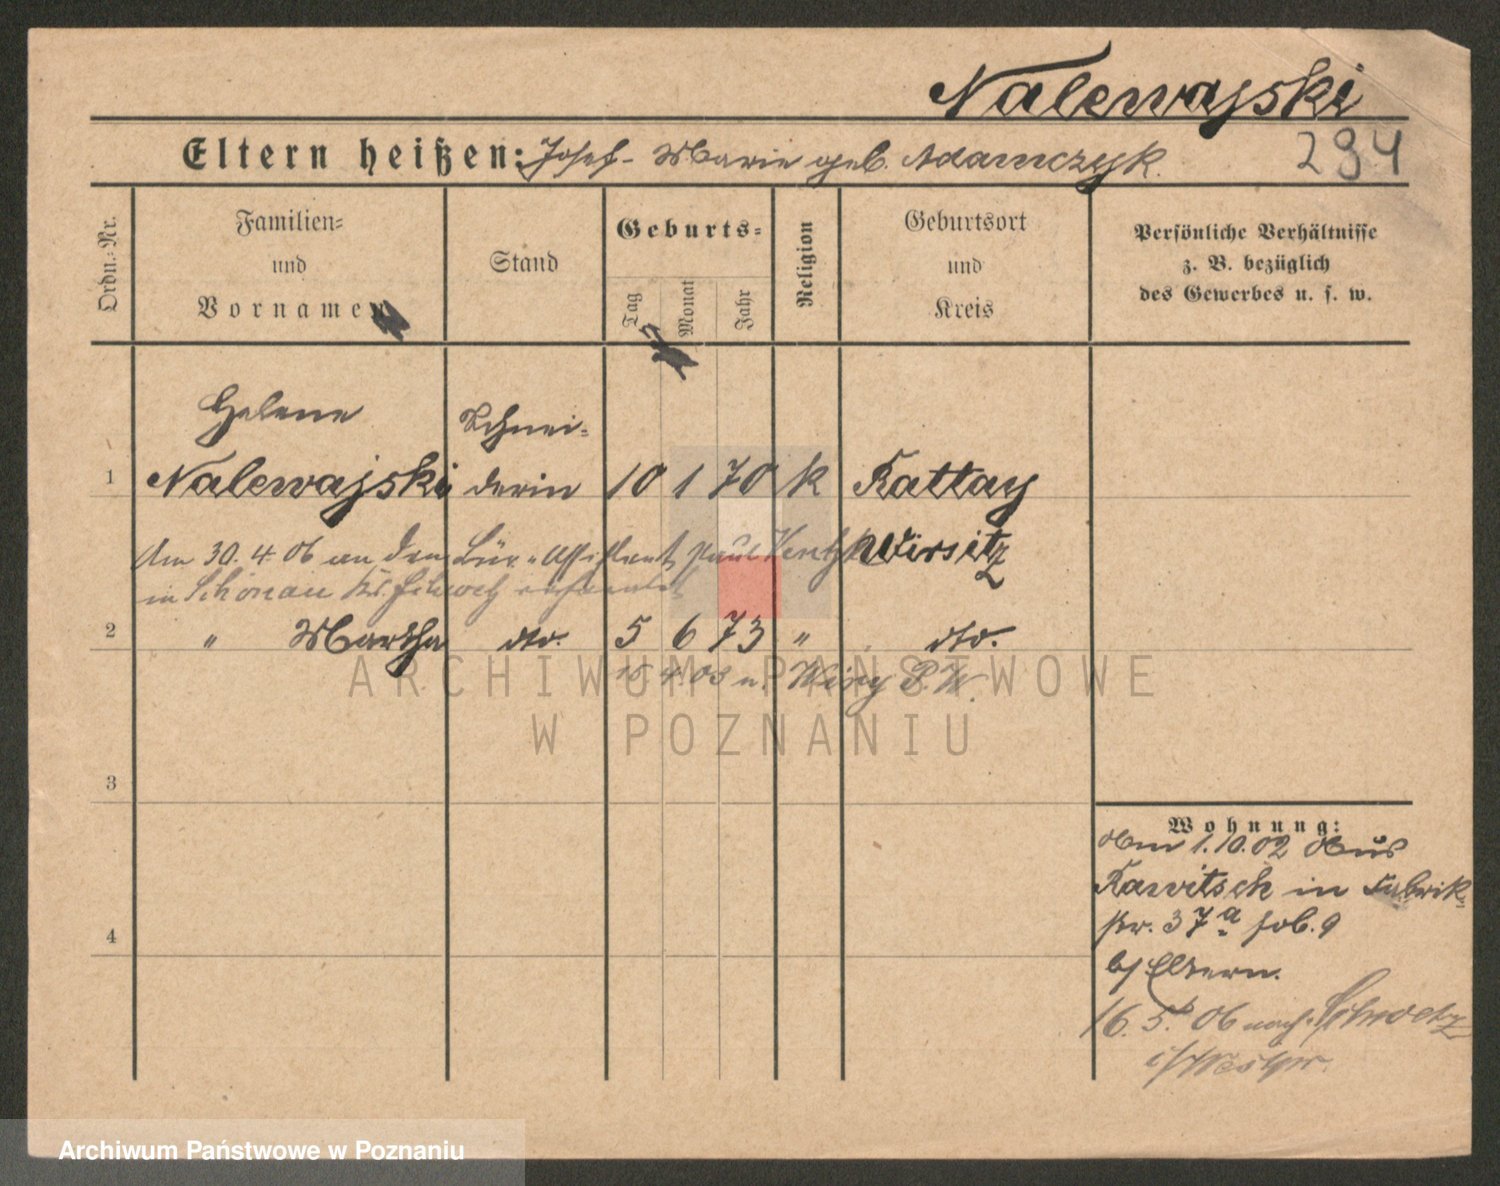 Nalewajski
Eltern heißen: Josef - Marie geb. Adamczyk.
294
Ordn.=Nr.
Familien=
und
Vornamen
Stand
Geburts=
Tag
Monat
Jahr
Religion
Geburtsort
und
Kreis
Persönliche Verhältnisse
z. B. bezüglich
des Gewerbes u. s. w.
Helene Schnei=
1 Nalewajski derin 10 1 70 k Kattay
Am 30.4.06 an den Bür. Assistent Paul Wirsitz
in Schönau Kr. Schwetz verheiratet
2 " Martha dto. 5 6 73 " dto.
15 4 03 n. P. W.
3
4
Wohnung:
Am 1.10.02 Aus
Rawitsch in Fabrik=
str. 37a
b/ Eltern.
16. 5. 06 nach Schwetz
i/Westpr.
ARCHIWUM PAŃSTWOWE
W POZNANIU
Archiwum Państwowe w Poznaniu